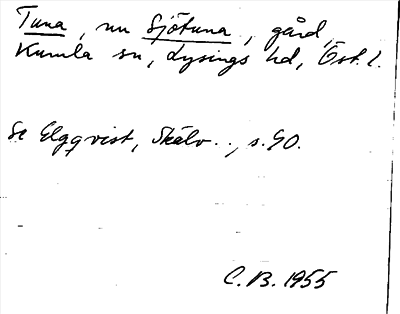 Tuna, nu Sjötuna, gård,
Kumla sn, Lysings hd, Öst. l.
Se Elgqvist, Skälv.., s. 90.
C. B. 1955